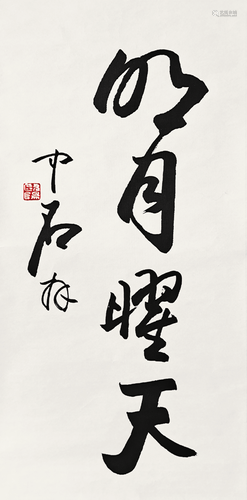 明月曜天
中石